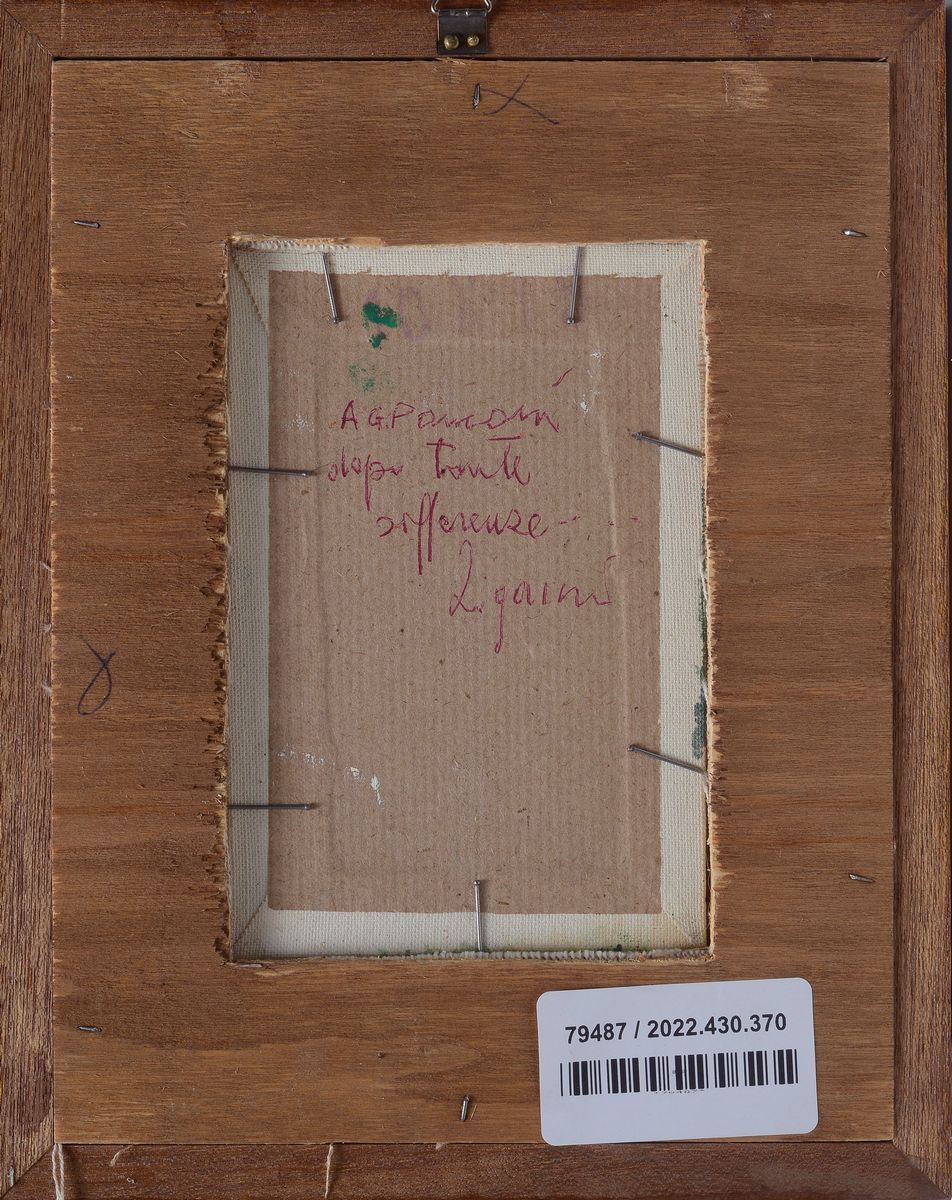 A G. Pancani
dopo tante
differenze - - - -
79487 / 2022.430.370